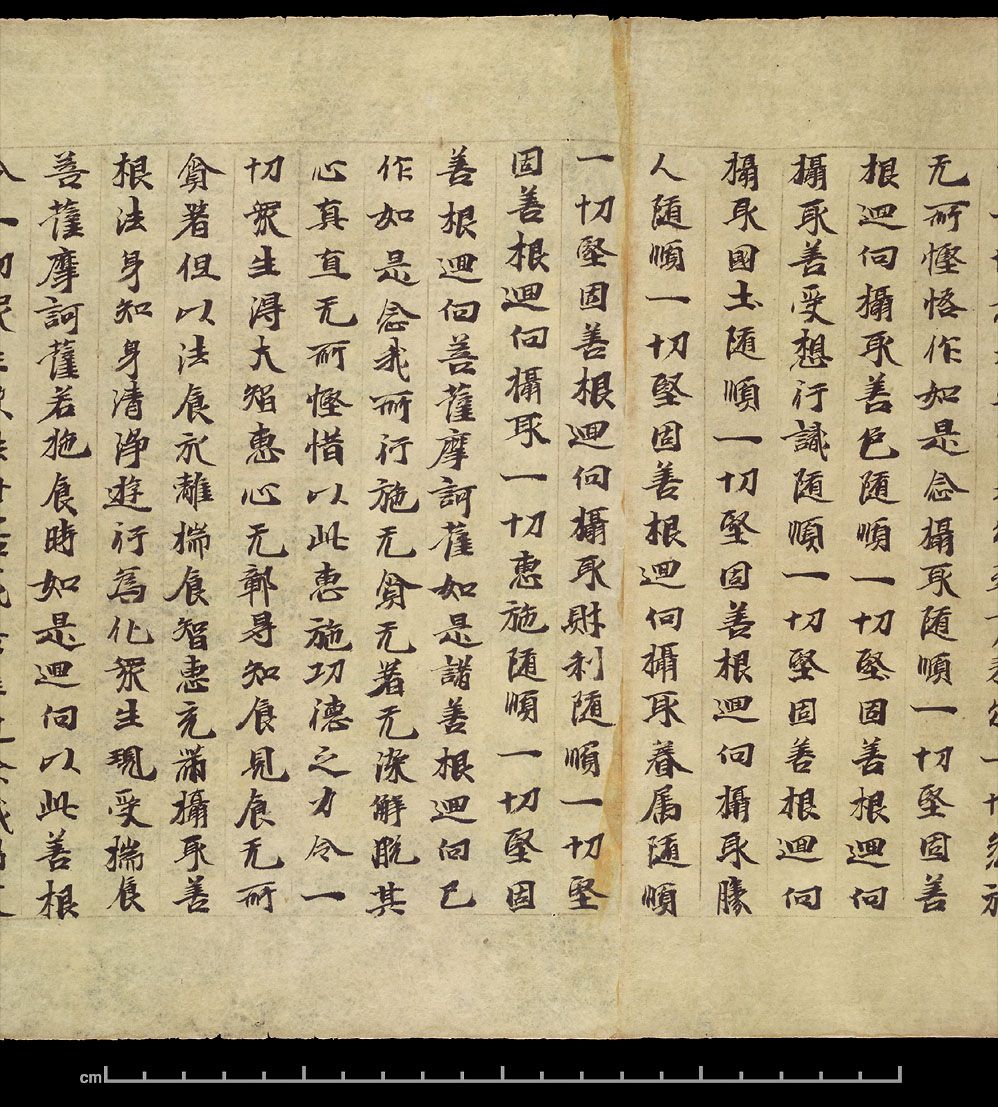 无所慳悋作如是念攝取随順一切堅固善
根迴向攝取善色随順一切堅固善根迴向
攝取善受想行識随順一切堅固善根迴向
攝取國土随順一切堅固善根迴向攝取勝
人随順一切堅固善根迴向攝取眷属随順
一切堅固善根迴向攝取財利随順一切堅
固善根迴向攝取一切惠施随順一切堅固
善根迴向菩薩摩訶薩如是諸善根迴向已
作如是念我所行施无貪无著无染解脱其
心真直无所慳惜以此惠施功德之力令一
切衆生得大智惠心无鄣㝵知食見食无所
貪著但以法食永離揣食智惠充滿攝取善
根法身知身清浄遊行為化衆生現受揣食
菩薩摩訶薩若施食時如是迴向以此善根